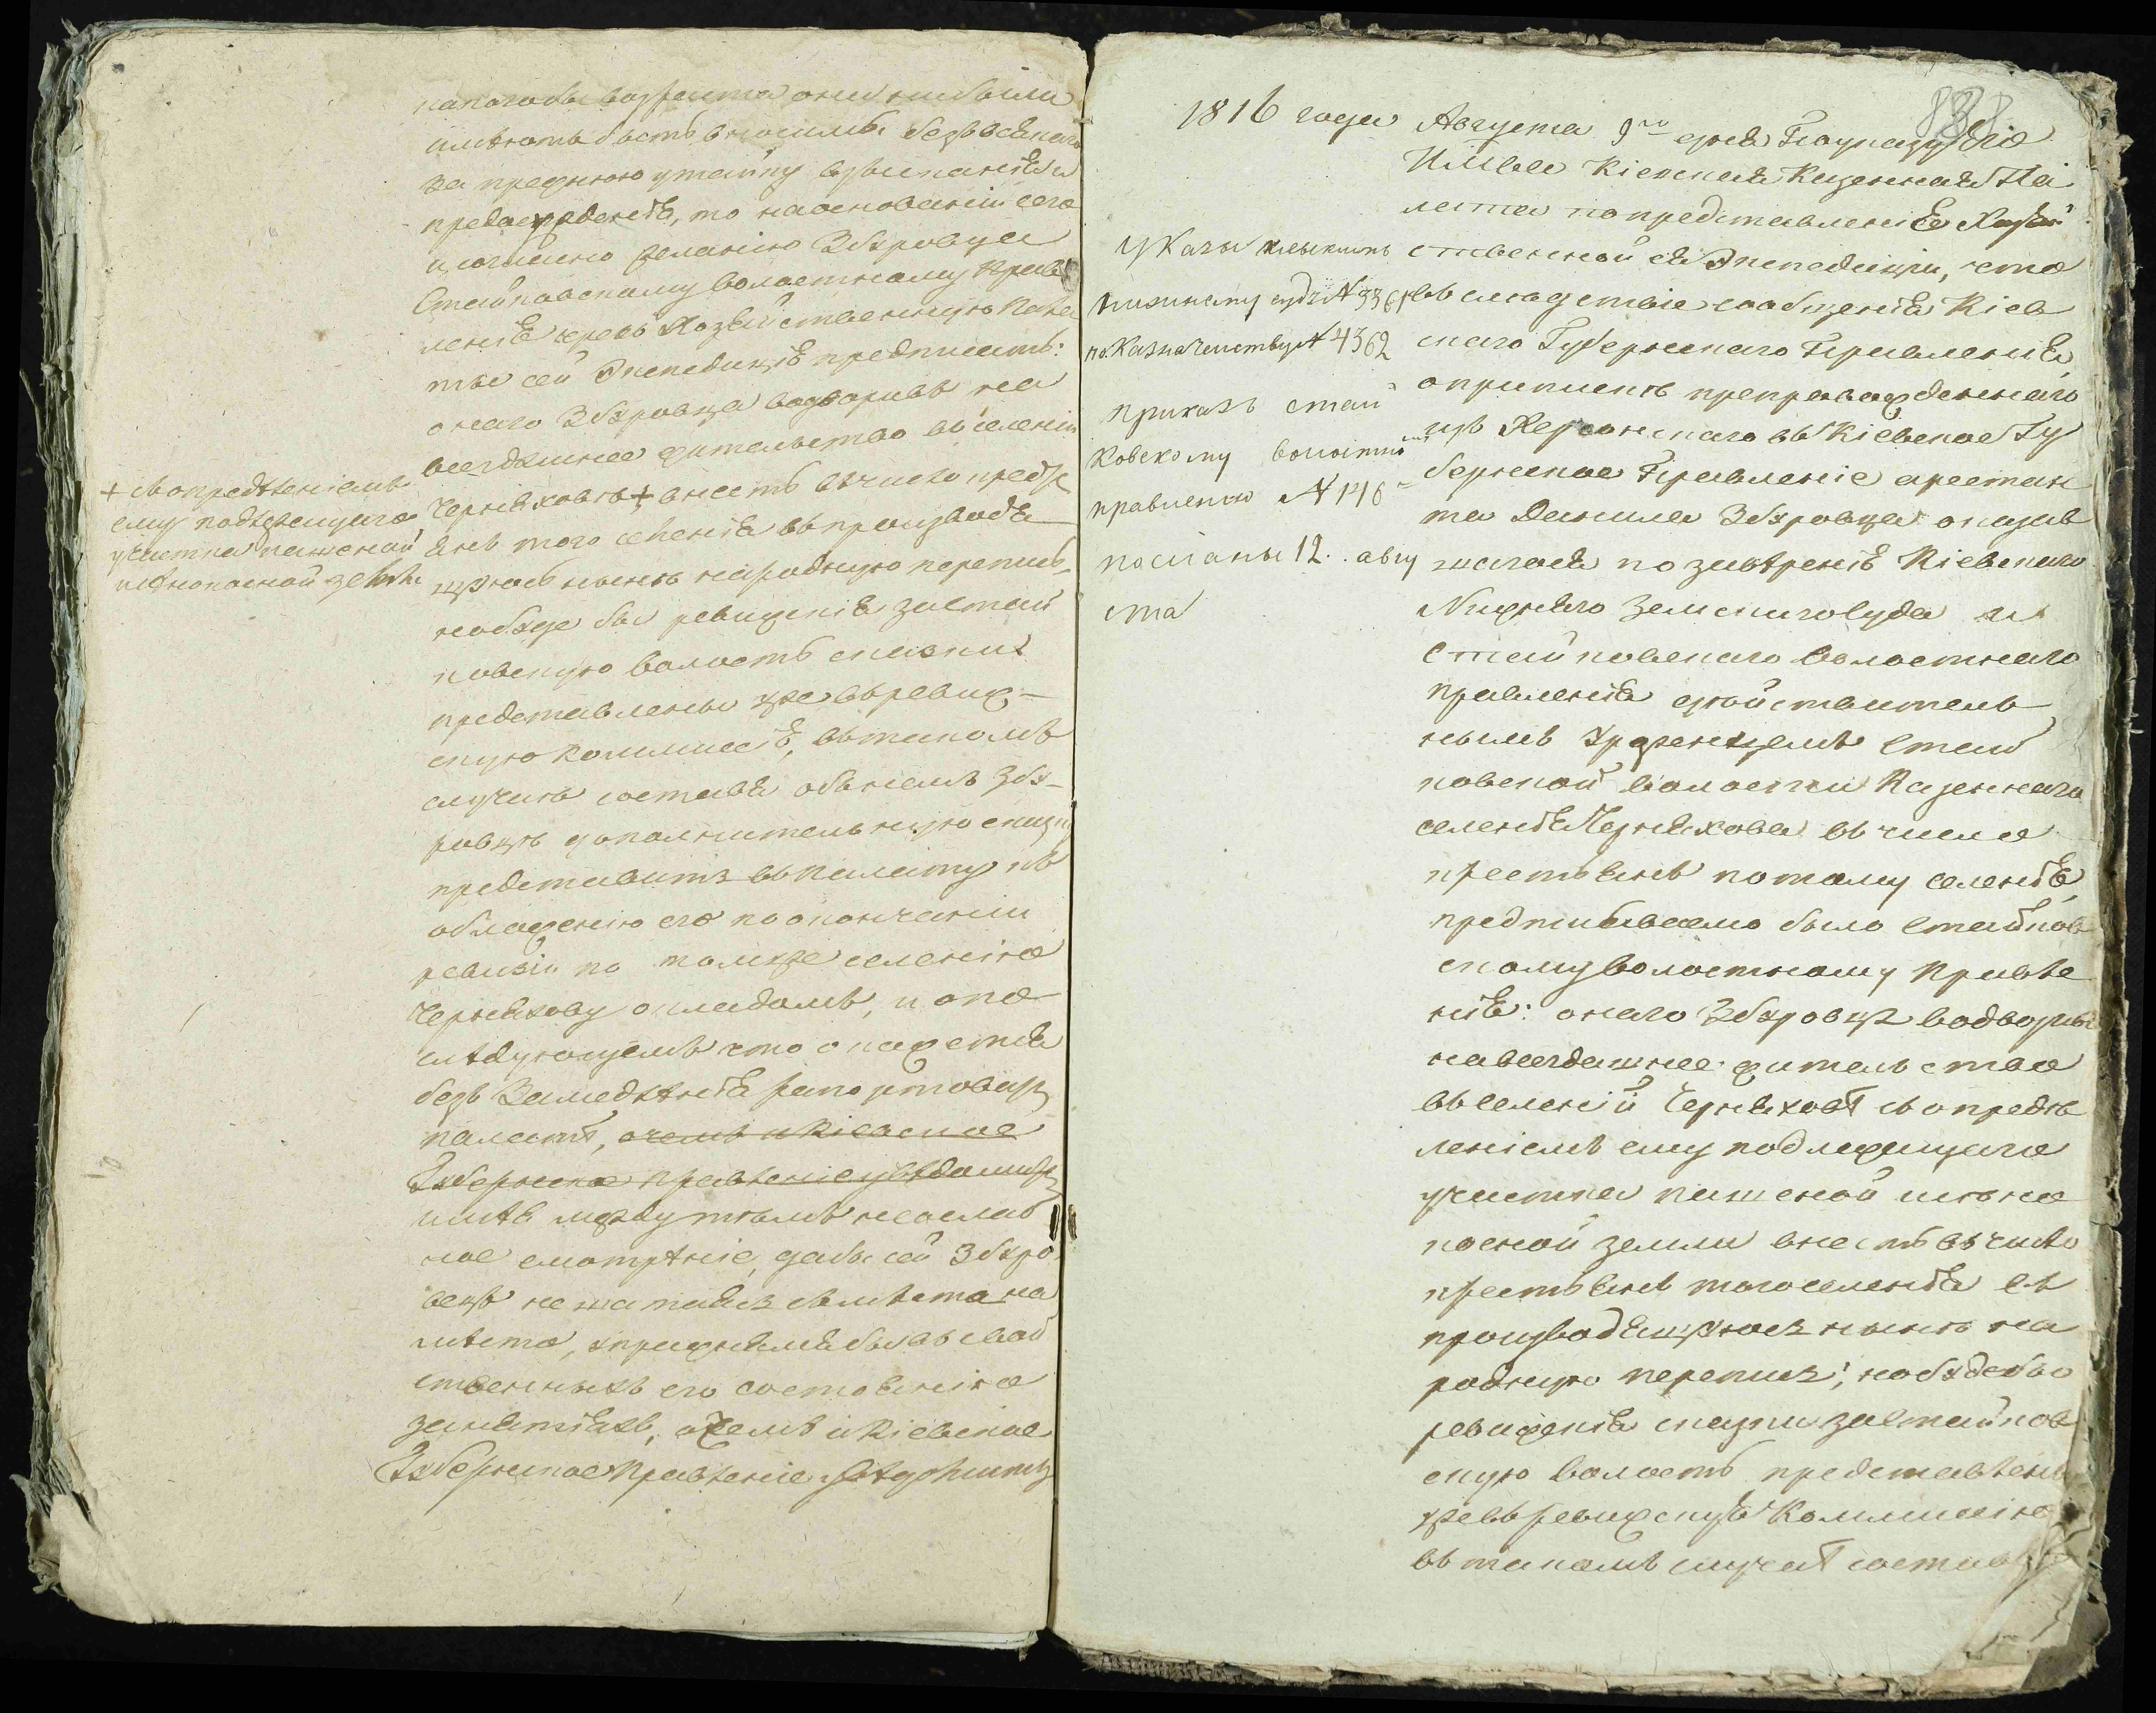 какогобы возраста они нибыли
имѣютъ бытъ вносимы безъ всякаго
за прежнюю утайку взысканія и
предосужденія, то наоснованіи сего
и согласно желанію Збѫровца
Стайковскому волостному Прав
ленію чрезъ Хозяйственную Пала
ты сей Экспедицію предписать:
онаго Збѫровца водворивъ на
всегдашнее жительство въ селеніи
Черняховѣ + внесть въ число кресть
янъ того селенія въ производя
щуюсь нынѣ народную перепись,
но буде бы ревижскія за Стай
ковскую волость сказки
представлены уже въ ревиж-
скую коммисію, въ такомъ
случаѣ составя объ немъ Збѫ-
ровцѣ дополнительную сказку
представить въ палату къ
обложенію его по окончаніи
ревизіи по томуже селенію
Черняхову окладомъ, и о по
слѣдующемъ что окажется
безъ Замедлѣнія рапортовать
палатѣ, очемъ и Кіевское
Губернское Правленіе увѣдомить
имѣя между тѣмъ неослаб
ное смотрѣніе, дабы сей Збѫро
вецъ не шатался съ мѣста на
мѣсто, упражнялся бы въ свой
ственныхъ его состоянію
занятіяхъ, о чемъ и Кіевское
Губернское Правленіе увѣдомить
+ съ опредѣленіемъ
ему подлежащаго
участка пашенной
и сѣнокосной земли
1816 года Августа 9го дня По указу Его
И МВа Кіевская Казенная Па
лата по представленію Хозяй
ственной ея Экспедиціи, что
въ слѣдствіе сообщенія Кіев
скаго Губернскаго Правленія
о припискѣ препровожденнаго
изъ Херсонскаго въ Кіевское Гу
бернское Правленіе арестан
та Данила Збѫровца оказав
шагося по завѣренію Кіевскаго
Нижняго Земскаго Суда и
Стайковскаго Волостнаго
правленія дѣйствитель
нымъ Урожен­цемъ Стай
ковской волости Казеннаго
селенія Черняхова въ число
крестьянъ по тому селенію
предписываемо было Стайков
скому Волостному Правле
нію: онаго Збѫровца водворивъ
на всегдашнее жительство
въ селеніи Черняховѣ съ опредѣ
леніемъ ему подлежащаго
участка пашеной и сѣно
косной земли внесть въ число
крестьянъ того селенія въ
производящуюсь нынѣ на
родную перепись; но буде бы
ревижскія сказки за Стайков
скую волость представлены
уже въ ревижскую Коммисію
въ такомъ случаѣ состав
Указы
суду N 3361
по Казначеству N 4362
приказъ Стай
ковскому волостному
правленію N 1416
посланы 12. авгу
ста